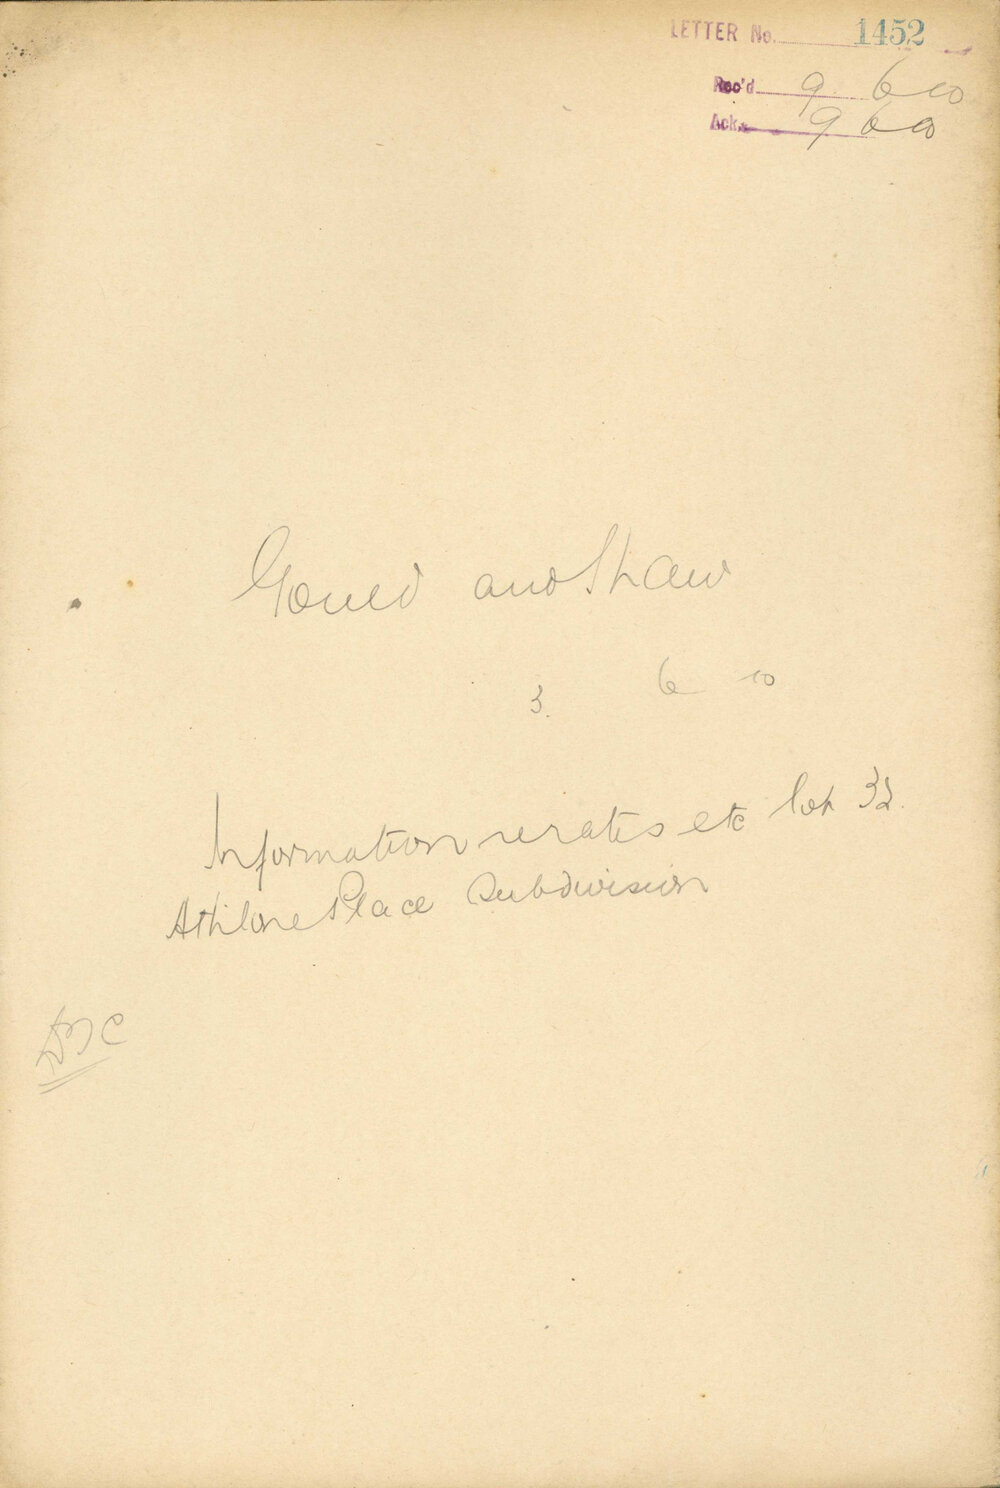 LETTER No. 1452
Rec'd 9 6 00
Ack. 9 6 00
Gould and Shaw
3. 6 00
Information re rates etc lot 32.
Athlone Place Subdivision